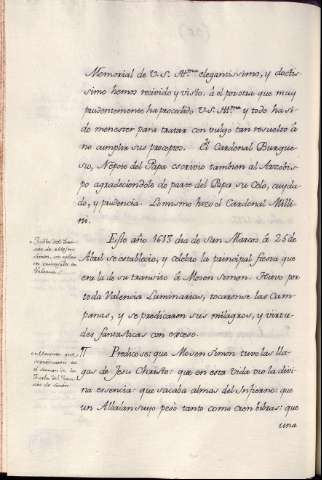 Memorial de V.S. Ill.ma elegantissimo, y doctis-
simo hemos recivido y visto, à el por otra que muy
prudentemente ha procedido V.S. Ill.ma y todo ha si-
do menester para tratar con vulgo tan resuelto à no
cumplir sus preceptos. El Cardenal Burgue-
sio, Nepote del Papa escrivio tambien al Arzobis-
po agradeciendole de parte del Papa su celo, cuyda-
do, y prudencia. Lo mismo hizo el Cardenal Milli-
ni.
Este año 1613 dia de San Marcos à 25 de
Abril se establecio, y celebro la principal fiesta que
era la de su transito à Mosen Simon. Huvo por
toda Valencia Luminarias, tocaronse las Cam-
panas, y se predicaron sus milagros, y virtu-
des fantasticas con exceso.
¶ Predicose: que Mosen Simon tuvo las lla-
gas de Jesu Christo: que en esta vida vio la divi-
na esencia: que sacaba almas del Infierno: que
un Albalan suyo pesò tanto como cien libras: que
una
Fiesta del
de Mosen
Simon, se
en
Valencia.
que
en
el dia de la
Fiesta del
de Simon.